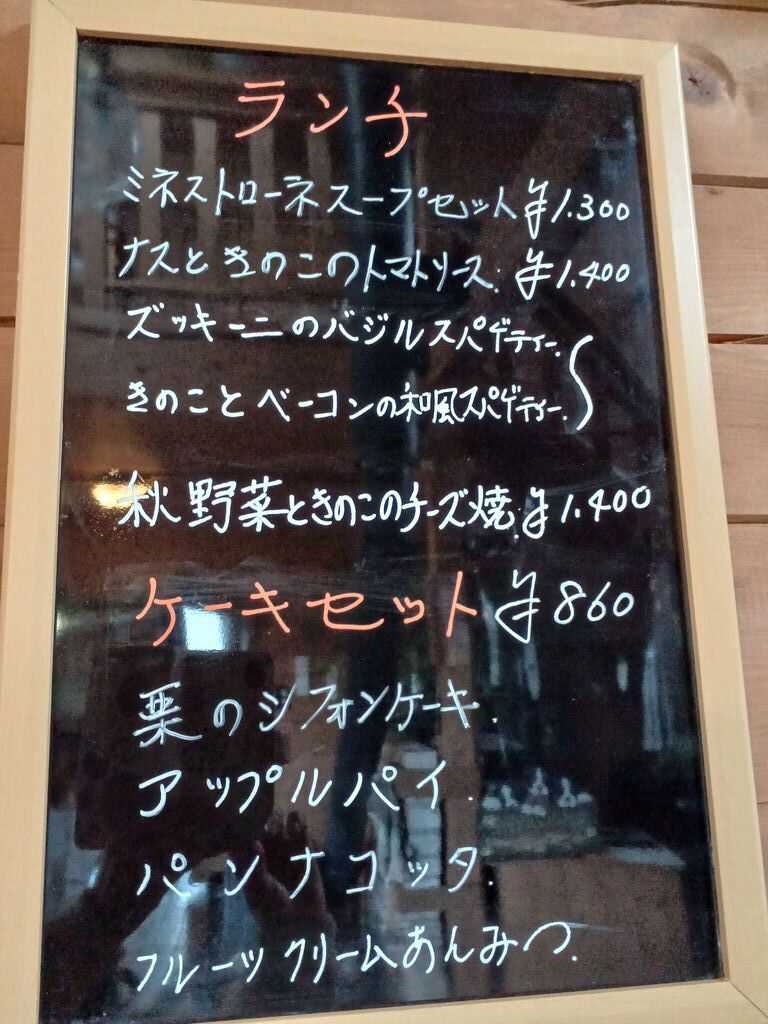 ランチ
ミネストローネスープセット ¥1.300
ナスときのこのトマトソース. ¥1.400
ズッキーニのバジルスパゲティー.
きのことベーコンの和風スパゲティー.
秋野菜ときのこのチーズ焼. ¥1.400
ケーキセット ¥860
栗のシフォンケーキ.
アップルパイ.
パンナコッタ.
フルーツクリームあんみつ.